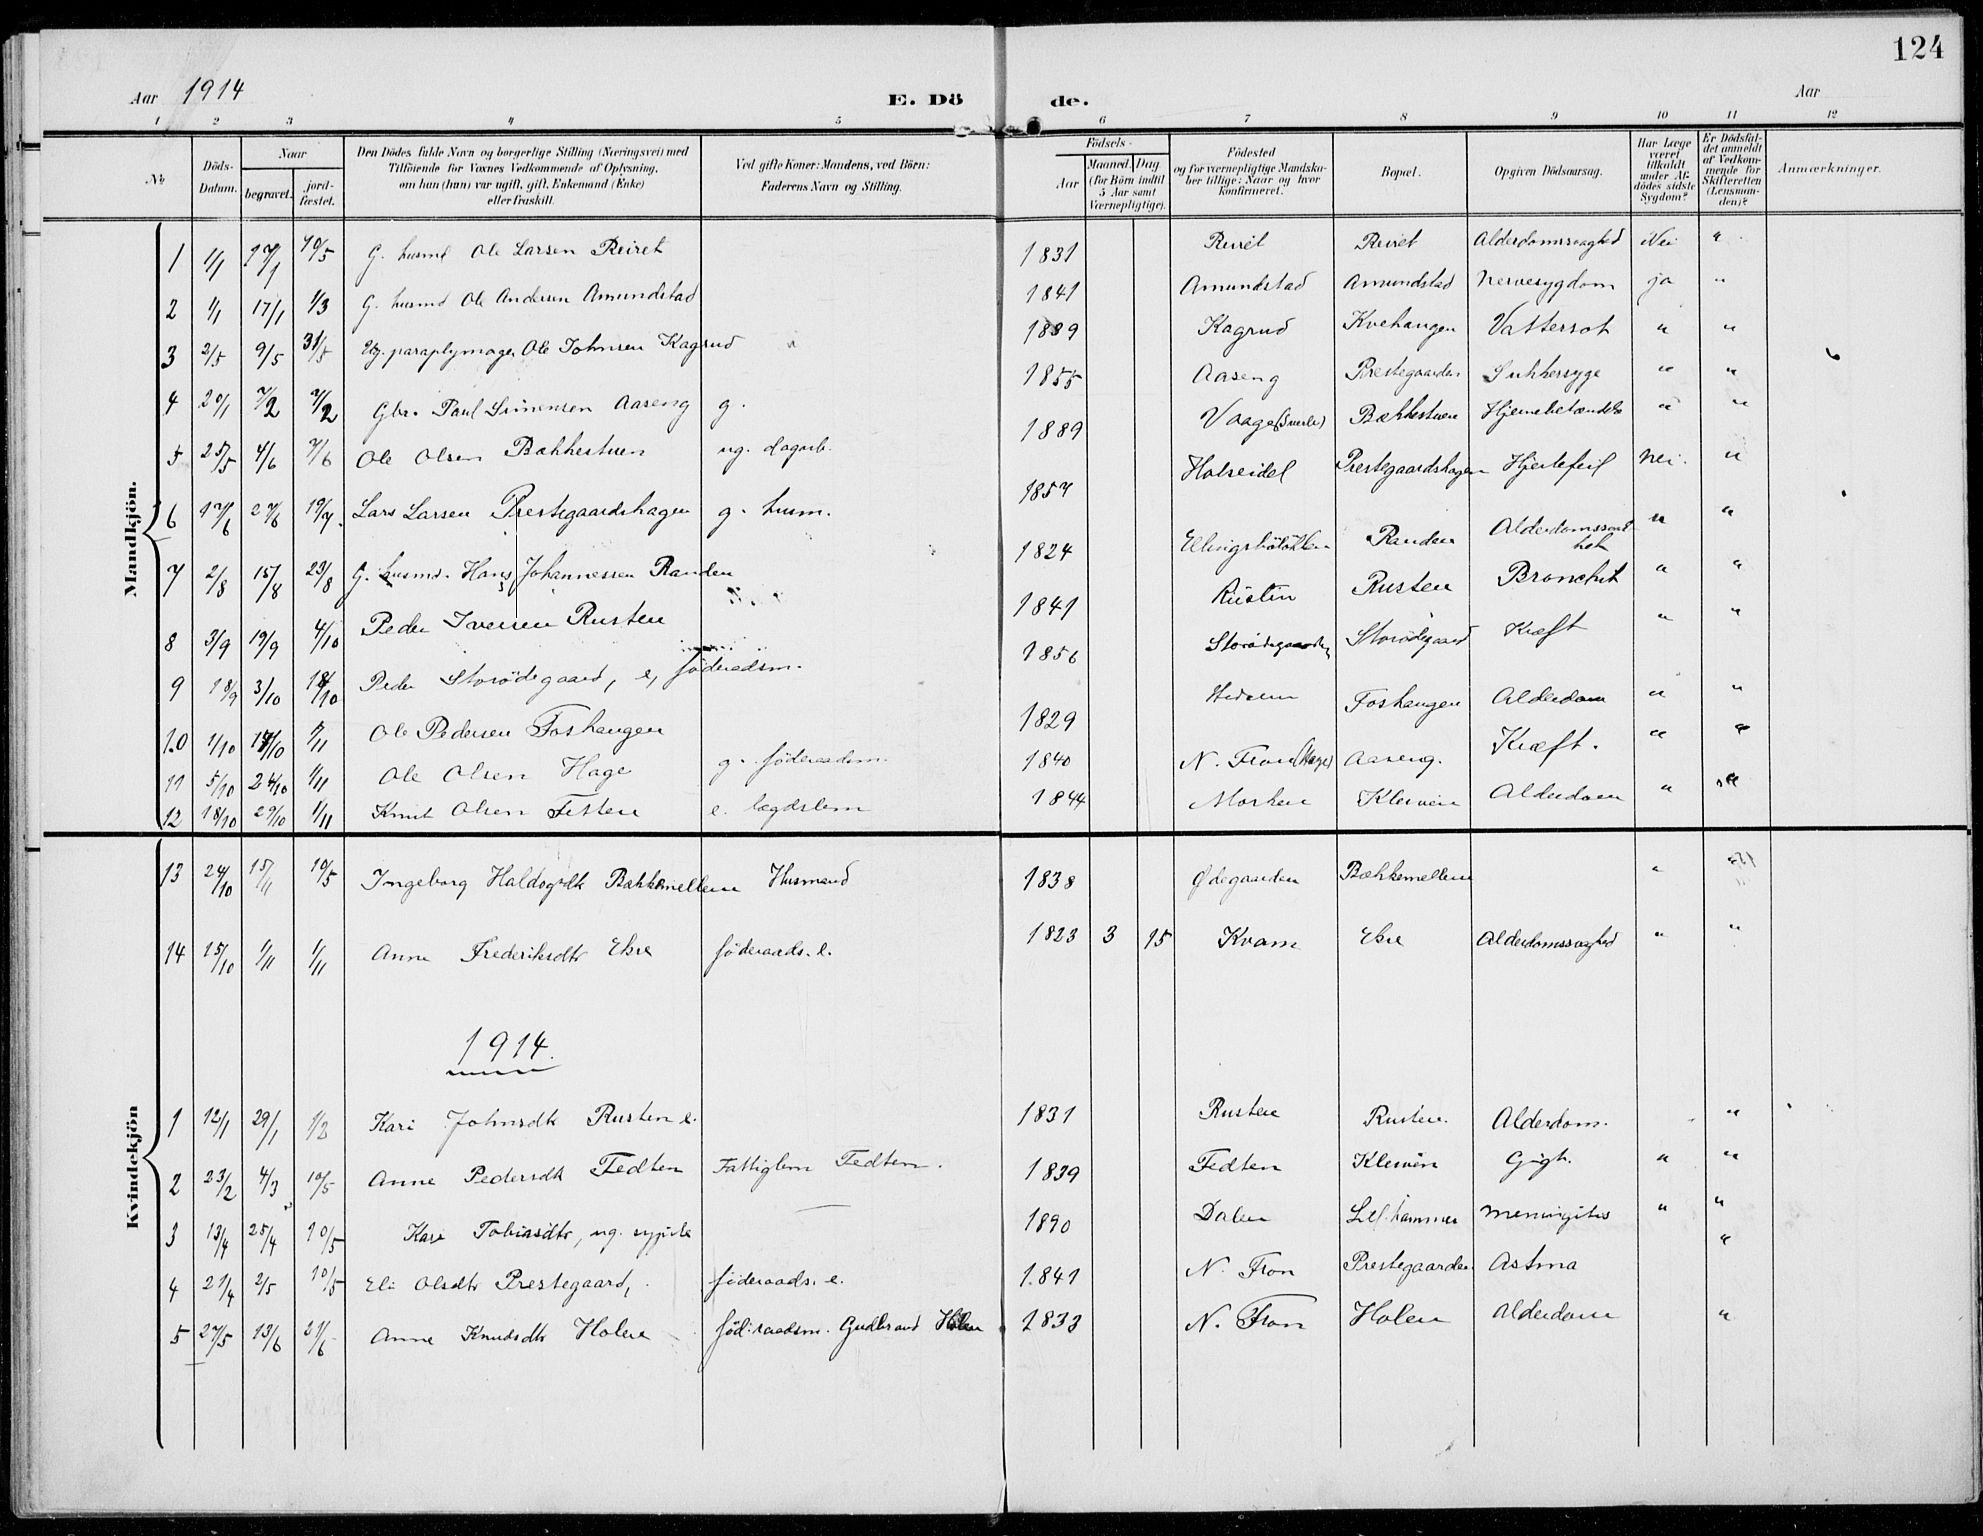 124
Aar 1914 E. Dö de. Aar
1 2 3 4 5 6 7 8 9 10 11 12
№ Döds-Datum. Naar begravet. jord-fæstet. Den Dödes fulde Navn og borgerlige Stilling (Næringsvei) med Tilföiende for Voxnes Vedkommende af Oplysning, om hun (han) var ugift, gift, Enkemand (Enke) eller fraskilt. Ved gifte Koner: Mandens, ved Börn: Faderens Navn og Stilling. Födsels- Aar Maaned. Dag (for Börn indtil 5 Aar samt Værnepligtige). Födested og for værnepligtige Mandskaber tillige: Naar og hvor konfirmeret. Bopæl. Opgiven Dödsaarsag. Har Læge været tilkaldt under Afdödes sidste Sygdom? Er Dödsfaldet anmeldt af Vedkommende for Skifteretten (Lensmanden)? Anmærkninger.
Mandkjön.
1 1/1 17/1 10/5 G. husmd Ole Larsen Reiret 1831 Reiret Reiret Alderdomssvaghed Nei "
2 1/1 17/1 1/3 G. husmd Ole Andersen Amundstad 1841 Amundstad Amundstad Nervesygdom ja "
3 2/5 9/5 31/5 Ug. paraplymager Ole Johnsen Kagrud 1839 Kagrud Kvehaugen Vattersot " "
4 20/1 7/2 7/2 Gbr. Paul Simensen Aaseng g. 1855 Aaseng Prestegaarden Sukkersyge " "
5 25/5 4/6 7/6 Ole Olsen Bækkestuen ug. dagarb. 1889 Vaage Bækkestuen Hjernebetændelse " "
6 17/6 27/6 19/7. Lars Larsen Prestegaardshagen g. husm. 1857 Holseidel Prestegaardshagen Hjertefeil Nei. "
7 2/8 15/8 23/8 G. husmd. Hans Johannessen Randen 1824 Randen Alderdomssvakhet " "
8 3/9 19/9 4/10 Peder Iversen Rusten 1841 Rusten Rusten Bronchit " "
9 18/9 3/10 18/10 Peder Storödegaard, e, föderadsm. 1856 Storödegaarden Storödegaard Kræft " "
10 1/10 17/10 1/11 Ole Pedersen Foshaugen 1829 Hedalen Foshaugen Alderdom " "
11 5/10 24/10 1/11 Ole Olsen Hage g. föderaadsm. 1840 N. Fron (Hage) Aaseng. Kræft. " "
12 18/10 29/10 1/11 Knut Olsen Fetten e. lægdslem 1844 Morken Kleiven Alderdom " "
Kvindekjön
13 24/10 15/11 10/5 Ingeborg Haldogsdtr Bækkemellem Husmand 1838 Ødegaarden Bækkemellem "
14 15/10 1/11 1/11 Anne Frederiksdtr Ekre föderaads. e. 1823 3 15 Kvam Ekre Alderdomssvaghed " "
1914.
1 12/1 29/1 1/2 Kari Johnsdtr Rusten e. 1831 Rusten Rusten. Alderdom. "
2 23/2 4/3 10/5 Anne Pedersdtr Fedten Fattiglem Fedten. 1839 Fedten Kleiven Gigt. " "
3 13/4 25/4 10/5 Kari Tobiasdtr, ug. sypike 1890 Dalen Lil.hammer Meningitis " "
4 21/4 2/5 10/5 Eli Olsdtr Prestegaard, föderaads. e. 1841 N. Fron Prestegaarden Astma "
5 27/5 13/6 21/6 Anne Knudsdtr Holen föd:raadsm. Gudbrand Holen 1833 N. Fron Holen Alderdom "